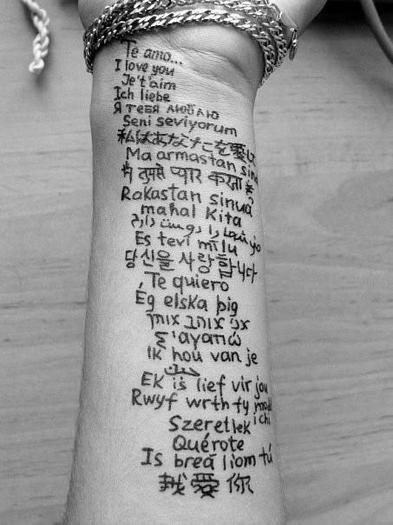 Te amo...
I love you
Je't'aim
Ich liebe
Я тебя люблю
Seni seviyorum
私はあなたこを愛し
Ma armastan sind
म तुमसे प्यार करता
Rakastan sinua
mahal Kita
دوست دارم
Es tevi mīlu
당신을 사랑합니다
Te quiero
Ég elska þig
אני אוהב אותך
Σ'αγαπώ
Ik hou van je
Ek is lief vir jou
Rwyf wrth fy modd
ichi
Szeretlek
Quérote
Is breá liom tú
我愛你